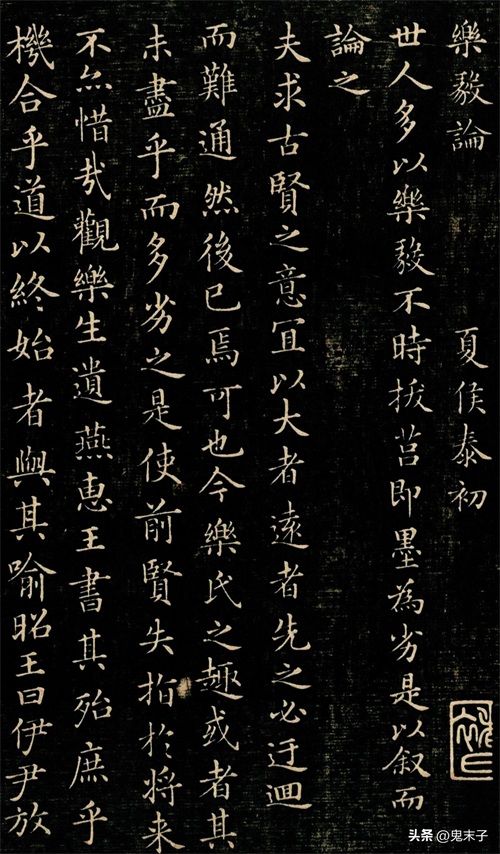 樂毅論 夏侯泰初
世人多以樂毅不時拔莒即墨為劣是以叙而
論之
夫求古賢之意宜以大者遠者先之必迂迴
而難通然後已焉可也今樂氏之趣或者其
未盡乎而多劣之是使前賢失指於将来
不亦惜哉觀樂生遺燕惠王書其殆庶乎
機合乎道以終始者與其喻昭王曰伊尹放
头条 @鬼末子